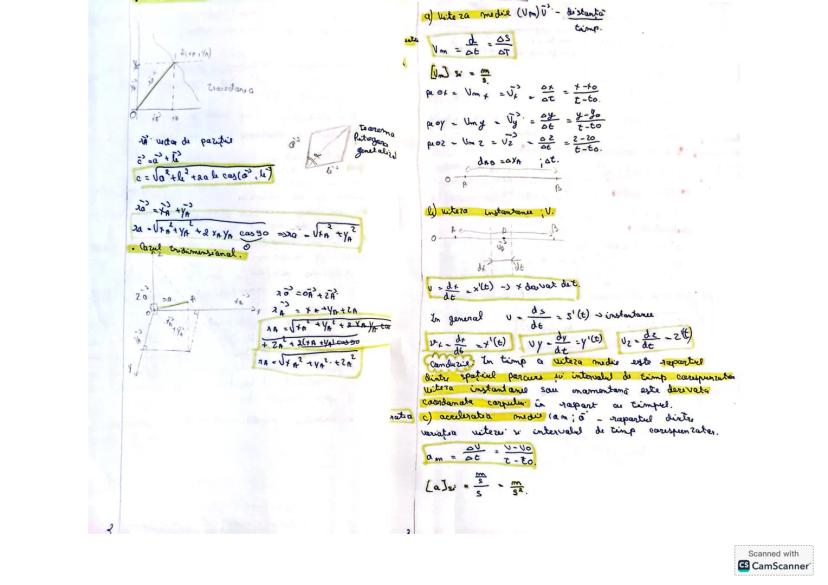 A(xA, yA)
yA
O
xA
traiectoria
rA: vector de poziție
c = a + b
c = √a² + b² + 2ab cos(a, b)
teorema
Pitagora
generalizat
a
b
α
rA = xA + yA
rA = √xA² + yA² + 2 xA yA cos90 ⇒ rA = √xA² + yA²
0
• Cazul tridimensional.
z
y
rA = OA + zA
rA = xA + yA + zA
rA = √xA² + yA² + 2xA yA cos
+ zA² + 2(xA + yA) cos90
rA = √xA² + yA² + zA²
2
a) Viteza medie (Vm) V - distanța
timp.
Vm = d/Δt = ΔS/ΔT
[Vm] SI = m/s.
pe ox = Vm x = Vx = Δx/Δt = x-x0/t-t0.
pe oy = Vm y = Vy = Δy/Δt = y-y0/t-t0
pe oz = Vm z = Vz = Δz/Δt = z-z0/t-t0.
O A B
b) Viteza instantanee, V.
O A B
dx dt
v = dx/dt = x'(t) → x derivat de t.
În general v = ds/dt = s'(t) → instantanee
vx = dx/dt = x'(t) vy = dy/dt = y'(t) vz = dz/dt = z'(t)
Concluzie: În timp a viteza medie este raportul
dintre spațiul parcurs și intervalul de timp corespunzător
viteza instantanee sau momentană este derivata
coordonatei corpului în raport cu timpul.
c) accelerația medie (am; a - raportul dintre
variația vitezei și intervalul de timp corespunzător.
am = ΔV/Δt = v-v0/t-t0.
[a]SI = m/s/s = m/s².
3
Scanned with
CS CamScanner